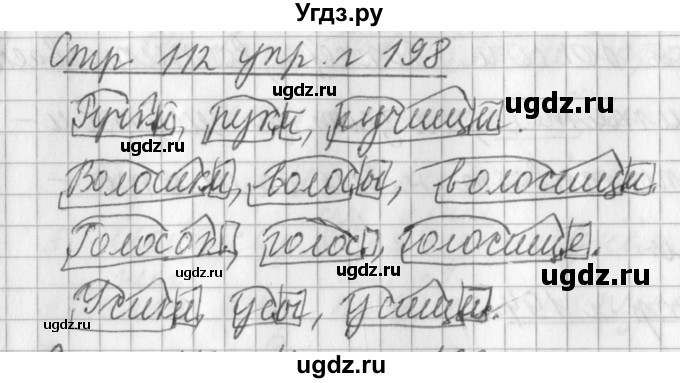 Угдз.ру
Стр. 112 упр. г 198
ugdz.ru
ugdz.ru
Ручки, руки, ручищи.
ugdz.ru
Волосики, волосы, волосищи.
ugdz.ru
Голосок, голос, голосище.
ugdz.ru
ugdz.ru
ugdz.ru
Усики, усы, усищи.
ugdz.ru
ugdz.ru
ugdz.ru